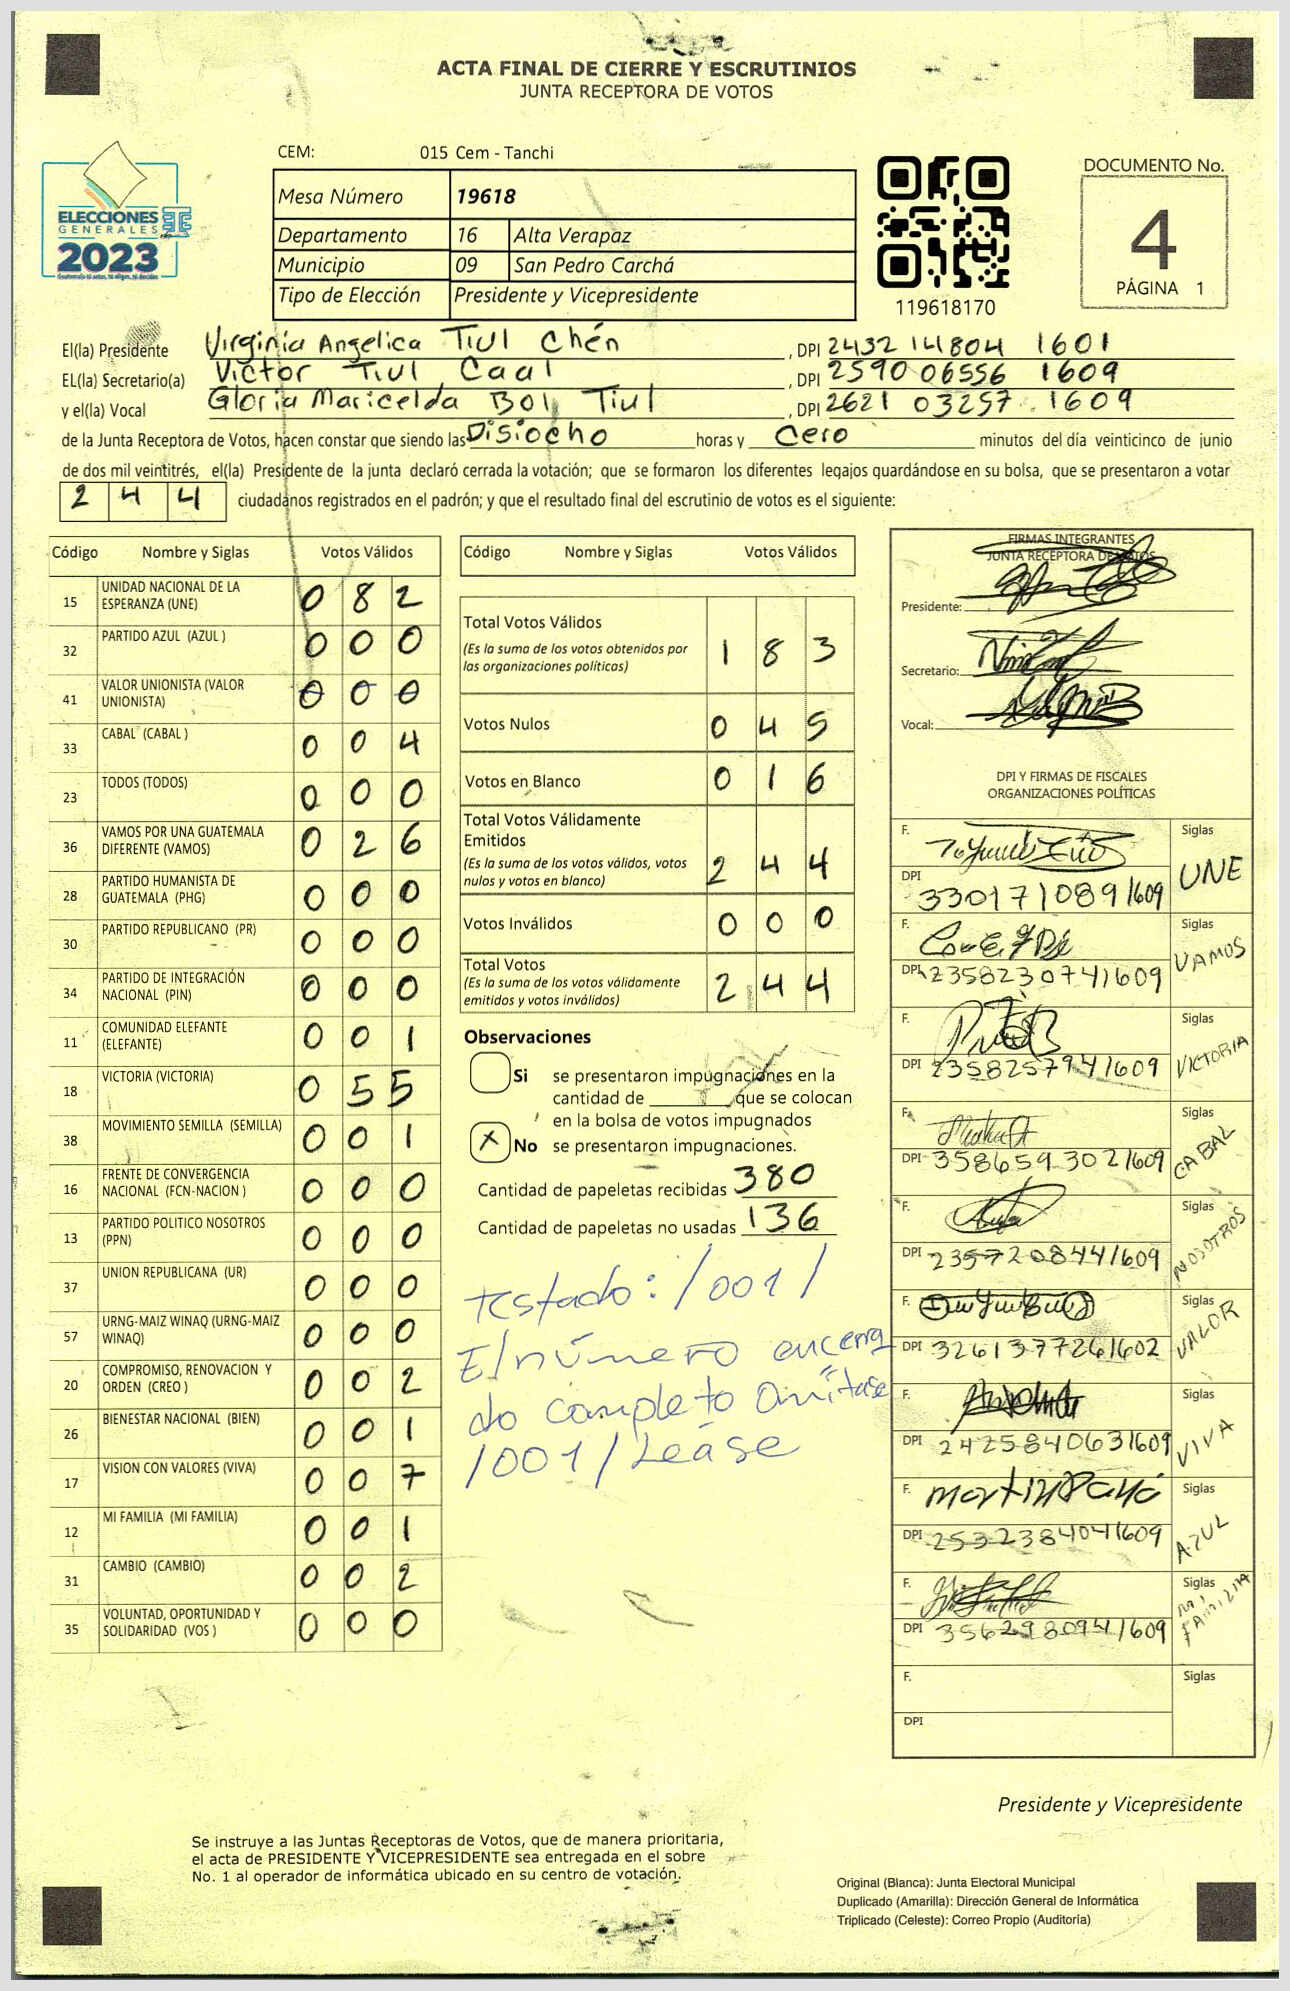 ACTA FINAL DE CIERRE Y ESCRUTINIOS
JUNTA RECEPTORA DE VOTOS
CEM: 015 Cem - Tanchi
Mesa Número 19618
Departamento 16 Alta Verapaz
Municipio 09 San Pedro Carchá
Tipo de Elección Presidente y Vicepresidente
ELECCIONES
GENERALES
2023
119618170
DOCUMENTO No.
4
PÁGINA 1
El(la) Presidente Virginia Angelica Tiul Chén , DPI 2432 14804 1601
EL(la) Secretario(a) Victor Tiul Caal , DPI 2590 06556 1609
y el(la) Vocal Gloria Maricelda Bol Tiul , DPI 2621 03257 1609
de la Junta Receptora de Votos, hacen constar que siendo las Disiocho horas y Cero minutos del día veinticinco de junio
de dos mil veintitrés, el(la) Presidente de la junta declaró cerrada la votación; que se formaron los diferentes legajos quardándose en su bolsa, que se presentaron a votar
244 ciudadanos registrados en el padrón; y que el resultado final del escrutinio de votos es el siguiente:
Código Nombre y Siglas Votos Válidos
15 UNIDAD NACIONAL DE LA ESPERANZA (UNE) 0 8 2
32 PARTIDO AZUL (AZUL ) 0 0 0
41 VALOR UNIONISTA (VALOR UNIONISTA) 0 0 0
33 CABAL (CABAL ) 0 0 4
23 TODOS (TODOS) 0 0 0
36 VAMOS POR UNA GUATEMALA DIFERENTE (VAMOS) 0 2 6
28 PARTIDO HUMANISTA DE GUATEMALA (PHG) 0 0 0
30 PARTIDO REPUBLICANO (PR) 0 0 0
34 PARTIDO DE INTEGRACIÓN NACIONAL (PIN) 0 0 0
11 COMUNIDAD ELEFANTE (ELEFANTE) 0 0 1
18 VICTORIA (VICTORIA) 0 5 5
38 MOVIMIENTO SEMILLA (SEMILLA) 0 0 1
16 FRENTE DE CONVERGENCIA NACIONAL (FCN-NACION ) 0 0 0
13 PARTIDO POLITICO NOSOTROS (PPN) 0 0 0
37 UNION REPUBLICANA (UR) 0 0 0
57 URNG-MAIZ WINAQ (URNG-MAIZ WINAQ) 0 0 0
20 COMPROMISO, RENOVACION Y ORDEN (CREO ) 0 0 2
26 BIENESTAR NACIONAL (BIEN) 0 0 1
17 VISION CON VALORES (VIVA) 0 0 7
12 MI FAMILIA (MI FAMILIA) 0 0 1
31 CAMBIO (CAMBIO) 0 0 2
35 VOLUNTAD, OPORTUNIDAD Y SOLIDARIDAD (VOS ) 0 0 0
Código Nombre y Siglas Votos Válidos
Total Votos Válidos 1 8 3
(Es la suma de los votos obtenidos por
las organizaciones políticas)
Votos Nulos 0 4 5
Votos en Blanco 0 1 6
Total Votos Válidamente
Emitidos 2 4 4
(Es la suma de los votos válidos, votos
nulos y votos en blanco)
Votos Inválidos 0 0 0
Total Votos 2 4 4
(Es la suma de los votos válidamente
emitidos y votos inválidos)
Observaciones
Si se presentaron impugnaciones en la
cantidad de ________ que se colocan
en la bolsa de votos impugnados
X No se presentaron impugnaciones.
Cantidad de papeletas recibidas 380
Cantidad de papeletas no usadas 136
Testado: /001/
El número encerra
do completo Omítase
/001/ Léase
FIRMAS INTEGRANTES
JUNTA RECEPTORA DE VOTOS
Presidente:
Secretario:
Vocal:
DPI Y FIRMAS DE FISCALES
ORGANIZACIONES POLÍTICAS
F. Siglas UNE
DPI 3301710891609
F. Siglas VAMOS
DPI 2358230741609
F. Siglas VICTORIA
DPI 2358257941609
F. Siglas CABAL
DPI 3586593021609
F. Siglas NOSOTROS
DPI 2357208441609
F. Siglas VALOR
DPI 3261377261602
F. Siglas VIVA
DPI 2425840631609
F. Siglas AZUL
DPI 2532384041609
F. Siglas mi FAMILIA
DPI 3562980941609
F. Siglas
DPI
Presidente y Vicepresidente
Se instruye a las Juntas Receptoras de Votos, que de manera prioritaria,
el acta de PRESIDENTE Y VICEPRESIDENTE sea entregada en el sobre
No. 1 al operador de informática ubicado en su centro de votación.
Original (Blanca): Junta Electoral Municipal
Duplicado (Amarilla): Dirección General de Informática
Triplicado (Celeste): Correo Propio (Auditoría)